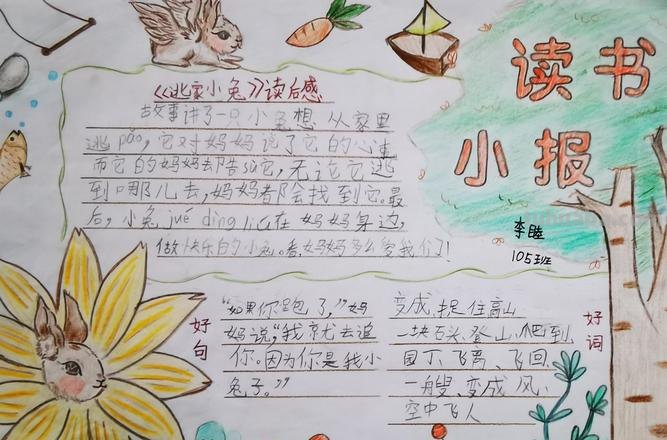 读书
小报
李睦
105班
《逃家小兔》读后感
故事讲了一只小兔想从家里
逃pǎo,它对妈妈说了它的心事
而它的妈妈却告sù它,无论它逃
到哪儿去,妈妈都会找到它。最
后,小兔jué dìng liú在妈妈身边,
做快乐的小兔。看,妈妈多么爱我们了!
好句
“如果你跑了,”妈
妈说,“我就去追
你。因为你是我小
兔子。”
好词
变成、捉住、高山
一块石头、登山、爬到、
园丁、飞离、飞回、
一艘、变成、风、
空中飞人